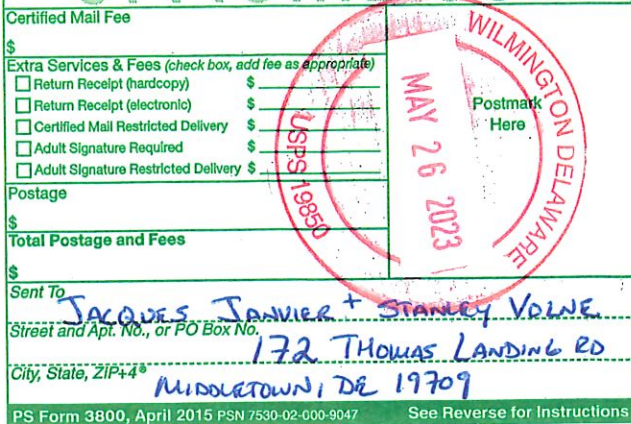 Certified Mail Fee
$
Extra Services & Fees (check box, add fee as appropriate)
Return Receipt (hardcopy) $
Return Receipt (electronic) $
Certified Mail Restricted Delivery $
Adult Signature Required $
Adult Signature Restricted Delivery $
Postmark
Here
WILMINGTON DELAWARE
MAY 26 2023
USPS 19850
Postage
$
Total Postage and Fees
$
Sent To
JACQUES JANVIER + STANLEY VOLNE
Street and Apt. No., or PO Box No.
172 THOMAS LANDING RD
City, State, ZIP+4®
MIDDLETOWN, DE 19709
PS Form 3800, April 2015 PSN 7530-02-000-9047 See Reverse for Instructions